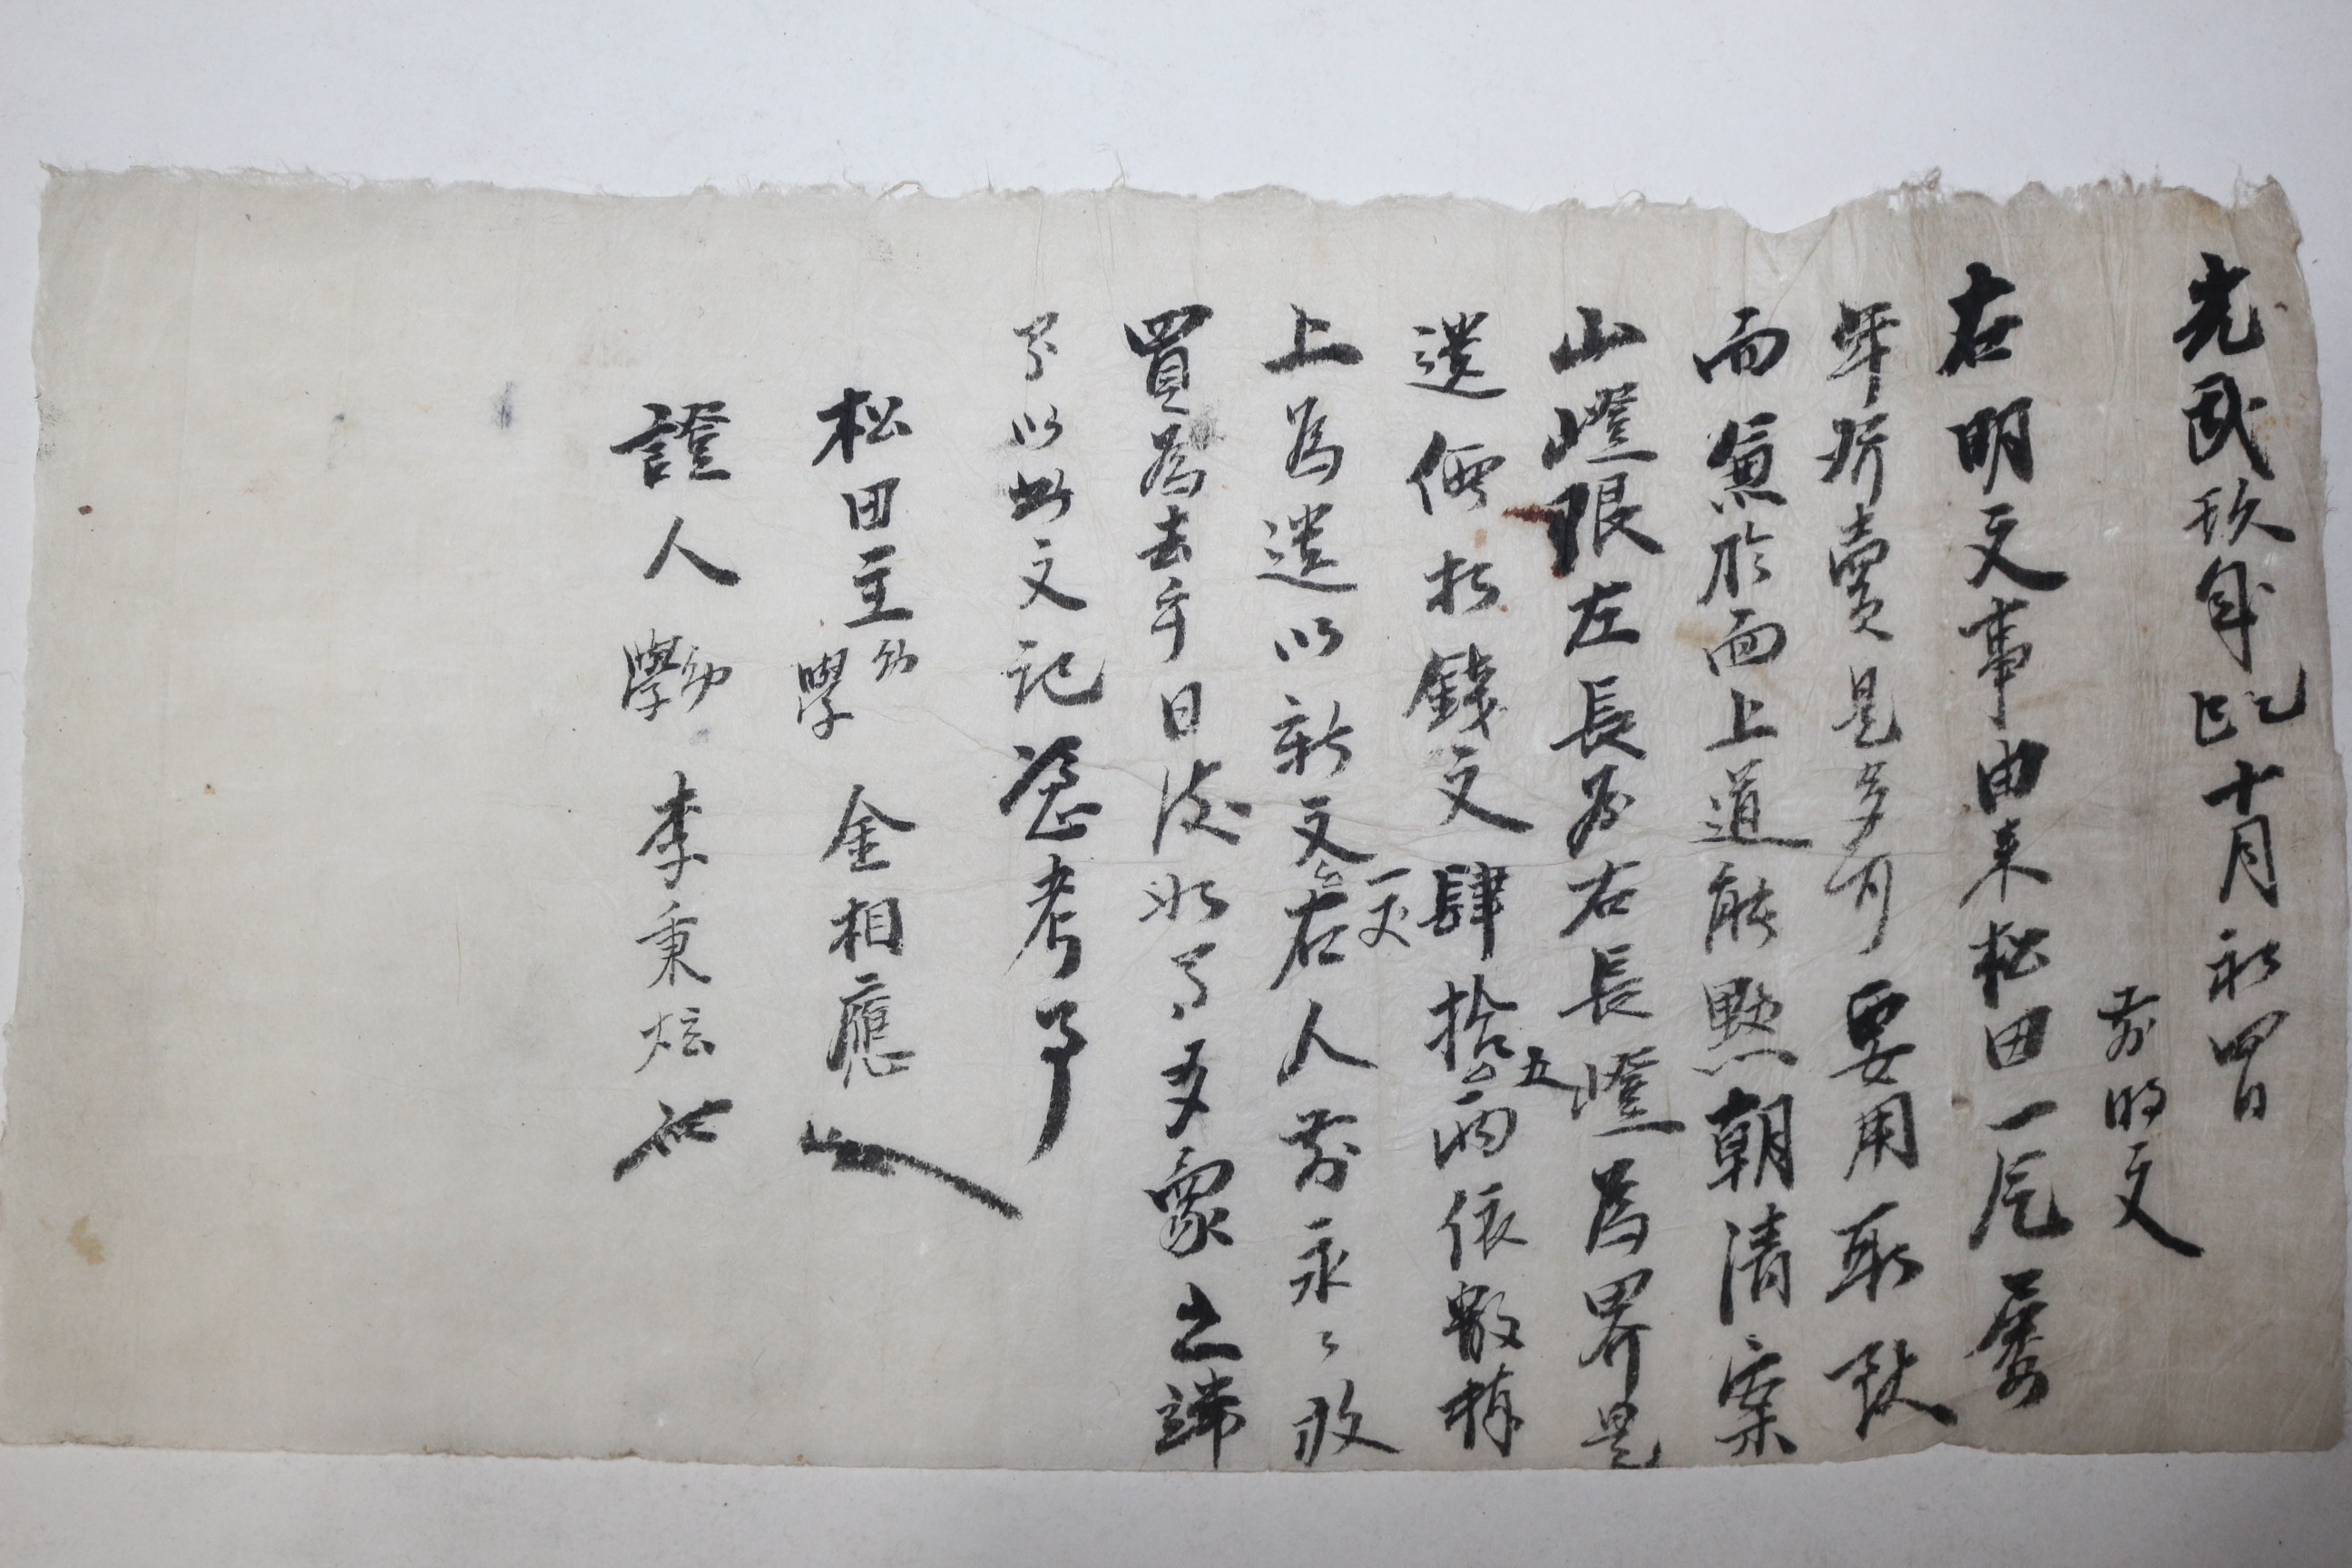 光武玖年乙巳十月初四日
前明文
右明文事由來松田一凡屢
年所賣是多可要用取次
而魚於面上道能熙朝清案
山嶝限左長谷右長嶝爲界是
遣価折錢文肆拾五兩依數捧
上爲遣以新文一丈右人前永永放
買爲去乎日後如有多象之端
了以此文記憑考事
松田主幼學 金相應
證人幼學 李秉炫